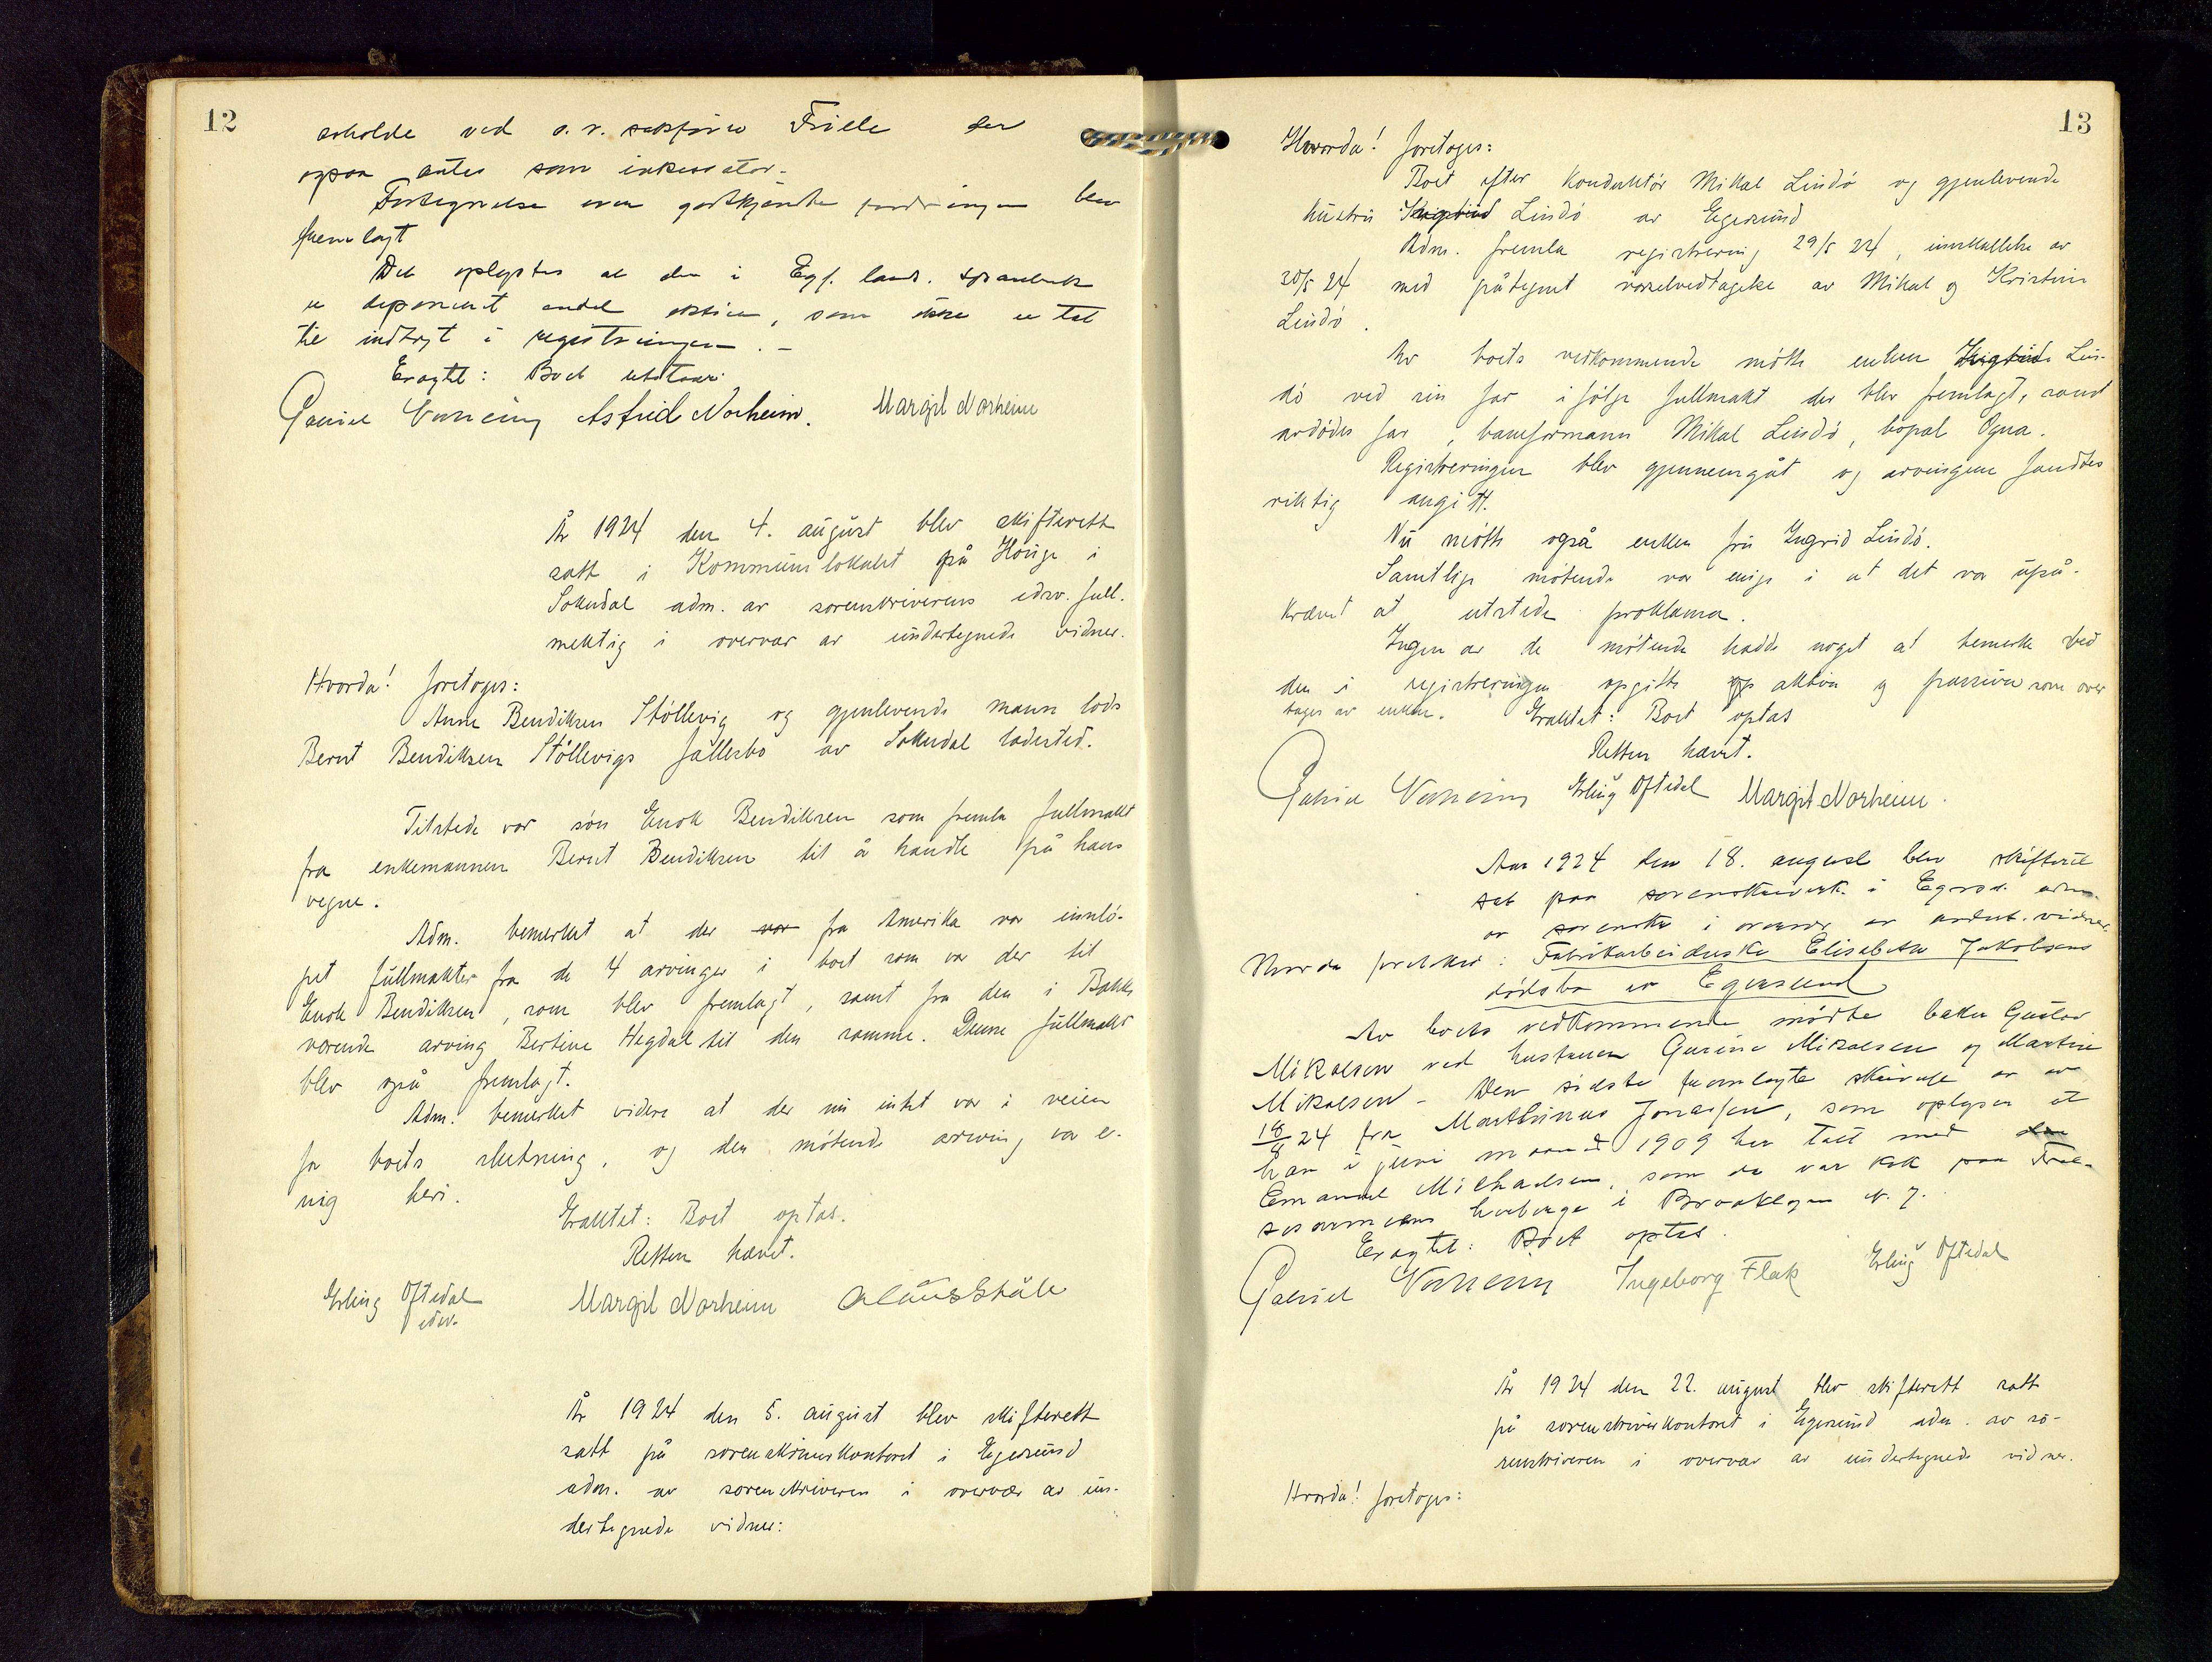 12
erholde ved o.r. sakfører Friele der
ogsaa antas som inkassator.
Fortegnelse over godtkjendte fordringer blev
fremlagt
Det oplystes at der i Egs. lands. sparebank
er deponeret andel aktier, som ikke er tat
til indtægt i registreringen. -
Eragtet: Boet utstaar.
Gabriel Astrid Norheim. Margit Norheim
År 1924 den 4. august blev skifterett
satt i Kommunelokalet på Hauge i
Sokndal adm. av sorenskriverens edsv. full-
mektig i overvær av undertegnede vidner.
Hvorda! foretoges:
Anne Bendiksen Støllevig og gjenlevende mann lods
Bernt Bendiksen Støllevigs fællesbo av Sokndal ladested.
Tilstede var søn Enok Bendiksen som fremla fullmakt
fra enkemannen Bernt Bendiksen til å handle på hans
vegne.
Adm. bemerket at der var fra Amerika var innlø-
pet fullmakter fra de 4 arvinger i boet som var der til
Enok Bendiksen, som blev fremlagt, samt fra den i Bakke
værende arving Bertine Hegdal til den samme. Denne fullmakt
blev også fremlagt.
Adm. bemerket videre at der nu intet var i veien
for boets slutning, og den møtende arving var e-
nig heri.
Eraktet: Boet optas.
Retten hævet.
Erling Oftedal Margit Norheim Claus Ståle
edsv.
År 1924 den 5. august blev skifterett
satt på sorenskriverkontoret i Egersund
adm. av sorenskriveren i overvær av un-
dertegnede vidner:
13
Hvorda! foretoges:
Boet efter konduktør Mikal Lindø og gjenlevende
hustru Lindø av Egersund
Adm. fremla registrering 29/5 24, innkallelse av
30/5 24 med påtegnet varselvedtagelse av Mikal og Kristine
Lindø.
Av boets vedkommende møtte enken Lin-
dø ved sin far i følge fullmakt der blev fremlagt, samt
avdødes far, baneformann Mikal Lindø, bopæl Ogna.
Registreringen blev gjennemgåt og arvingene fandtes
riktig angitt.
Nu møtte også enken fru Ingrid Lindø.
Samtlige møtende var enige i at det var upå-
krævet at utstede proklama.
Ingen av de møtende hadde noget at bemerke ved
den i registreringen opgitte aktiva og passiva som over
tages av enken. Eraktet: Boet optas
Retten hævet.
Gabriel Erling Oftedal Margit Norheim.
Aar 1924 den 18. august blev skifteret
sat paa sorenskriverk. i Egersd. adm.
av sorenskr. i overvær av undert. vidner.
Hvorda foretokes: Fabrikarbeiderske Elisabeth Jakobsens
dødsbo av Egersund
Av boets vedkommende møtte baker Gustav
Mikalsen ved hustruen Gurine Mikalsen og Martin
Mikalsen - Den sidste fremlagte skrivelse av
18/8 24 fra Marthinus Jonassen, som oplyser at
han i juni maaned 1909 har talt med den
Emanuel Michaelsen, som da var kok paa Frel-
sesarmeens herberge i Brooklyn N. Y.
Eragtet: Boet optas.
Gabriel Ingeborg Flak Erling Oftedal
År 1924 den 22. august blev skifterett satt
på sorenskriverkontoret i Egersund adm. av so-
renskriveren i overvær av undertegnede vidner.
Hvorda! foretoges: